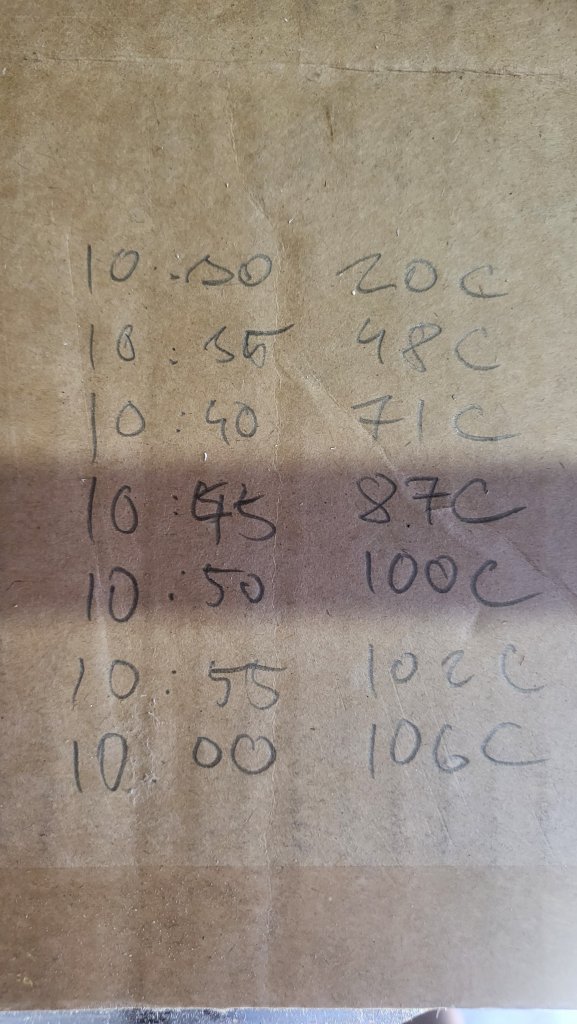 10:30 20C
10:35 48C
10:40 71C
10:45 87C
10:50 100C
10:55 102C
10 00 106C